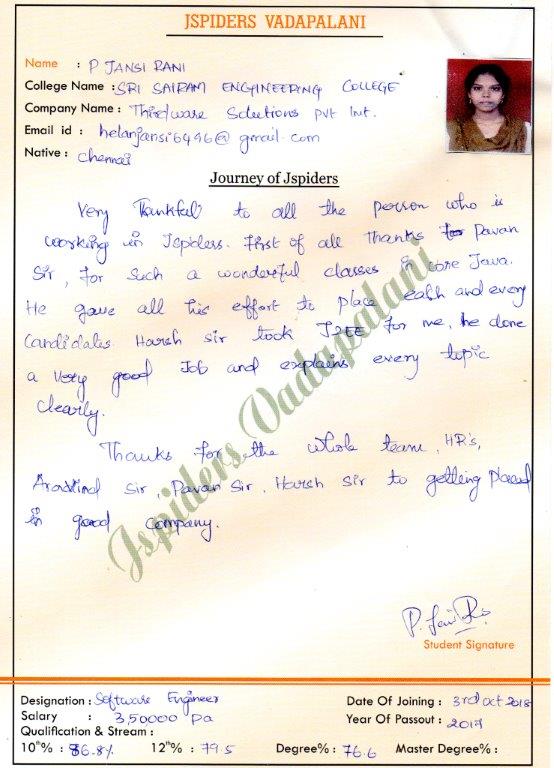 JSPIDERS VADAPALANI
Name : P JANSI RANI
College Name : SRI SAIRAM ENGINEERING COLLEGE
Company Name : Thirdware Solutions Pvt lmt.
Email id : helanjansi6496@gmail.com
Native : Chennai
Journey of Jspiders
Very Thankful to all the person who is
working in Jspiders. First of all Thanks for Pavan
Sir, for such a wonderful classes in core Java.
He gave all his effort to place each and every
candidates. Harsh sir took J2EE for me, he done
a very good Job and explains every topic
clearly.
Thanks for the whole team, HR's,
Aravind sir Pavan Sir, Harsh sir to getting placed
in good company.
Jspiders Vadapalani
Student Signature
Designation : Software Engineer
Date Of Joining : 3rd oct 2018
Salary : 3,50000 Pa
Year Of Passout : 2017
Qualification & Stream :
10th% : 86.8% 12th% : 79.5 Degree% : 76.6 Master Degree% :